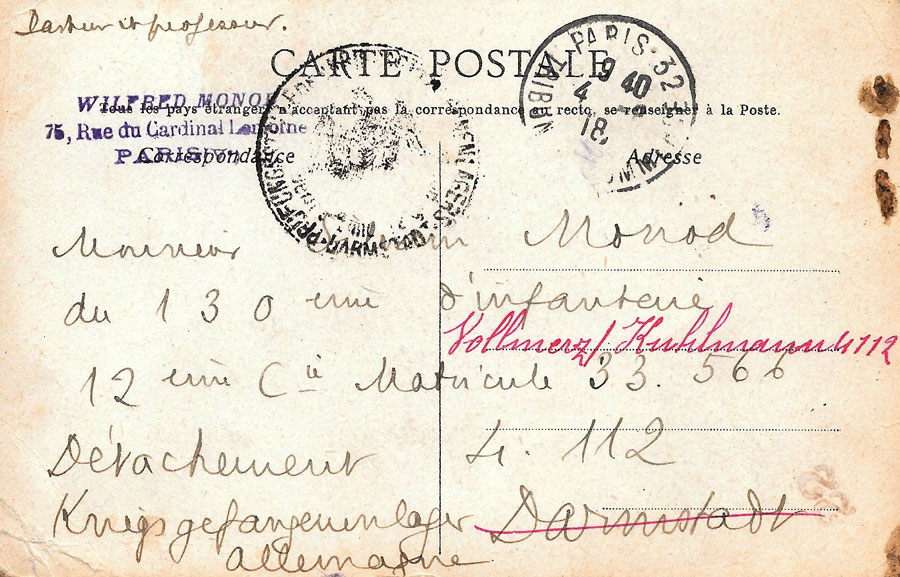 Pasteur et professeur.
CARTE POSTALE
Tous les pays étrangers n'acceptant pas la correspondance au recto, se renseigner à la Poste.
WILFRED MONOD
75, Rue du Cardinal Lemoine
PARIS
Correspondance
Adresse
PARIS 32
9 40
4
18
DARMSTADT
Monsieur Monod
du 130 eme d'infanterie
Vollmerz/Kuhlmann 4112
12 eme Cie Matricule 33.566
Détachement 4.112
Kriegsgefangenenlager Darmstadt
Allemagne